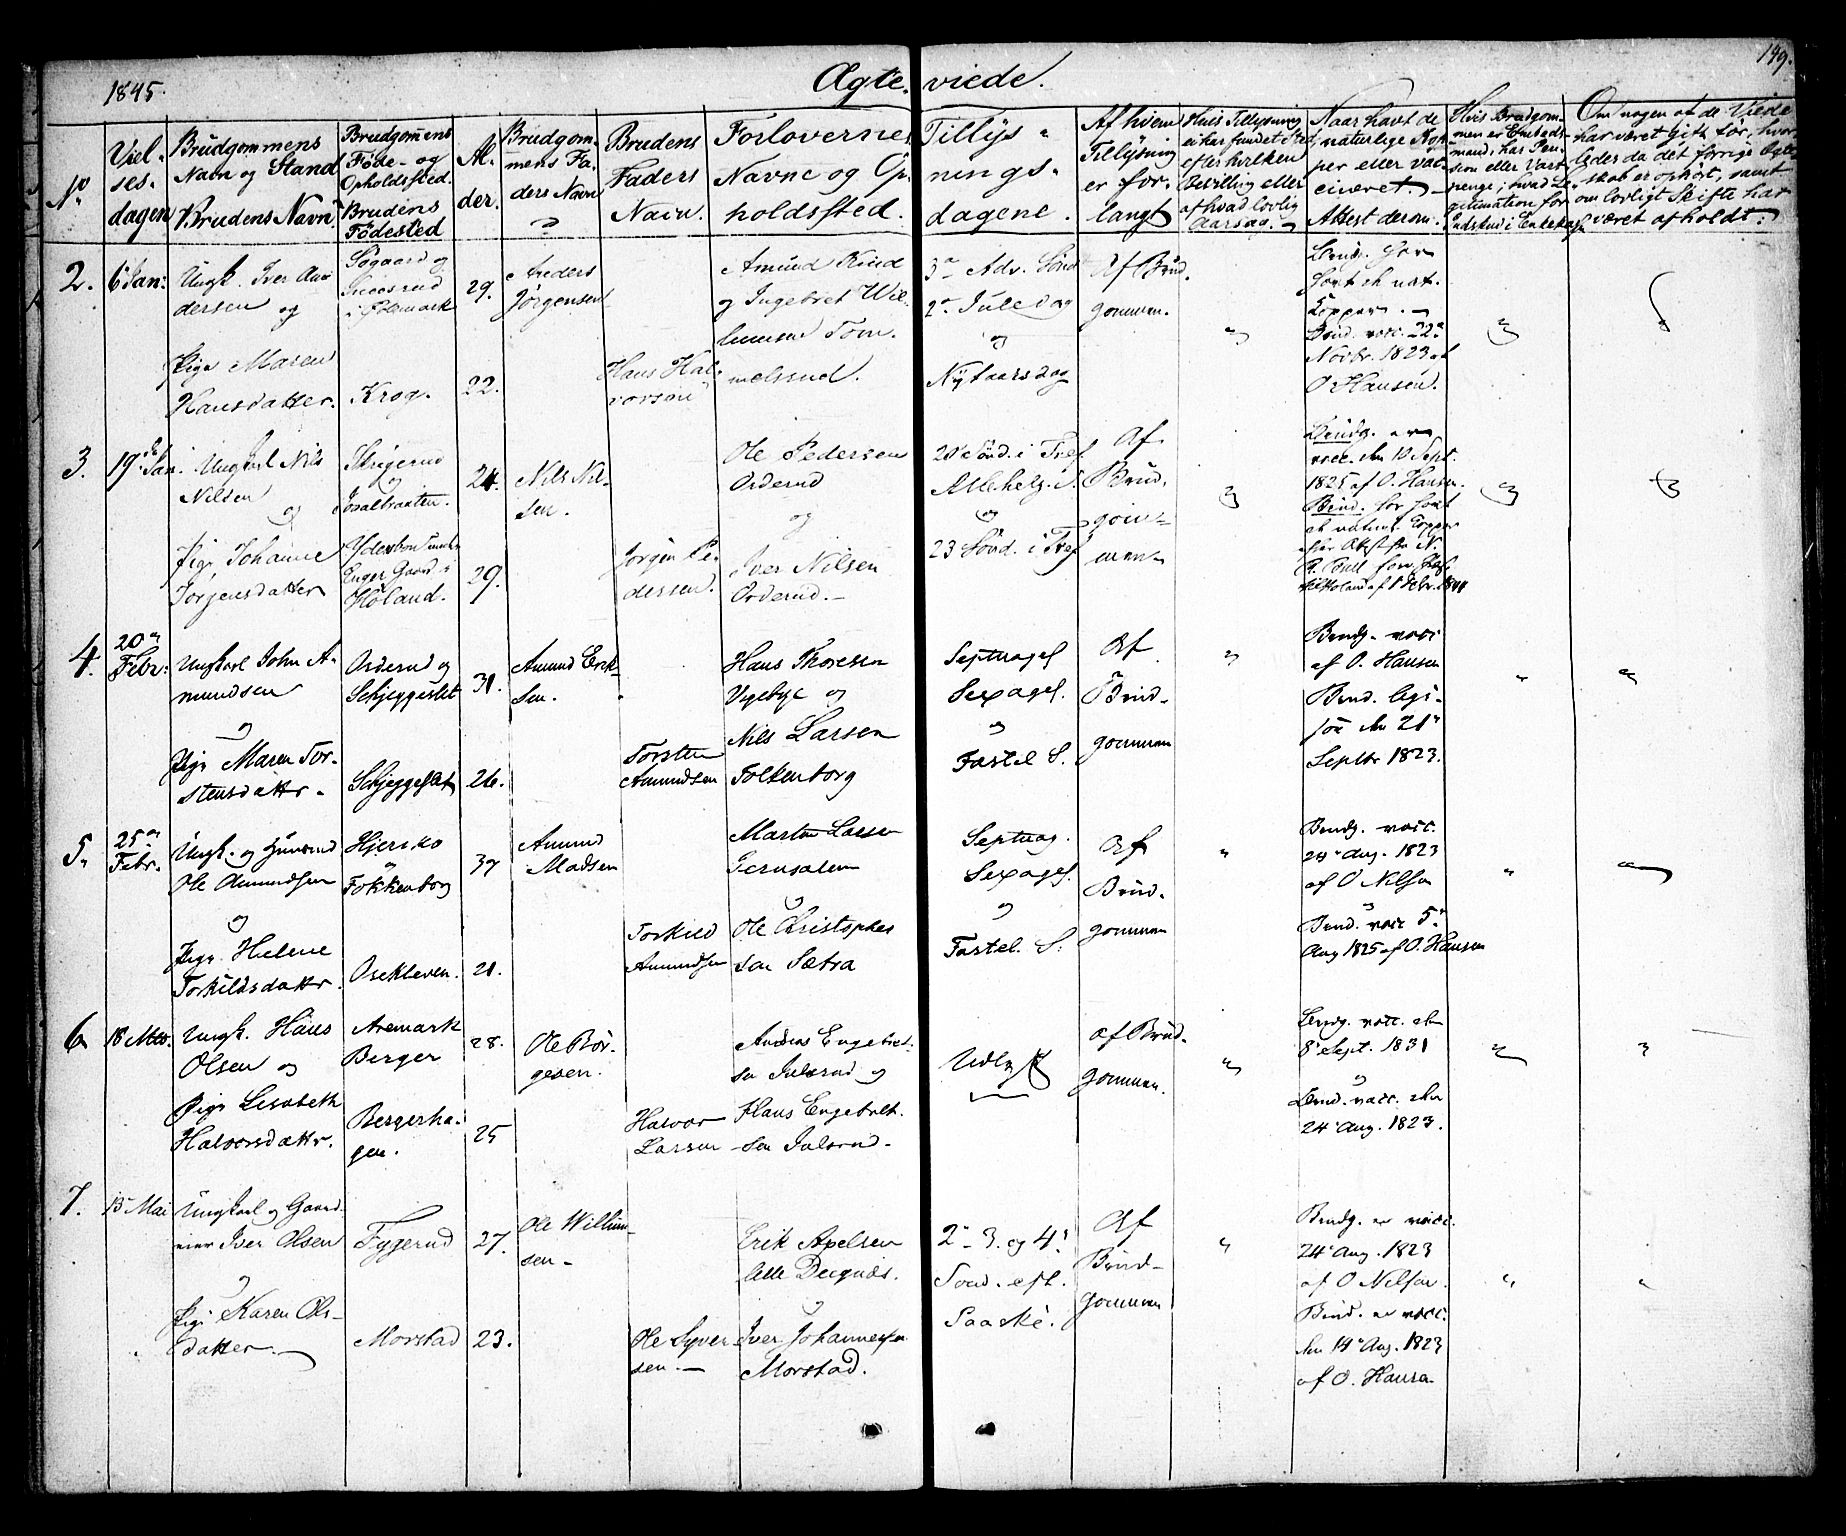 1845.
Ægte- viede.
149.
No
Viel-
ses-
dagen
Brudgommens
Navn og Stand
Brudens Navn
Brudgommens
Føde- og
Opholdssted.
Brudens
Födested
Al-
der.
Brudgom-
mens Fa-
ders Navn
Brudens
Faders
Navn.
Forlovernes
Navne og Op-
holdssted.
Tillys-
nings-
dagene.
Af hvem
Tillysning
er for-
langt
Hvis Tillysning
ei har fundet Sted,
efter hvilken
Bevilling eller
af hvad lovlig
Aarsag.
Naar havt de
naturlige Kop-
per eller vac-
cineret.
Attest derom.
Hvis Brudgom-
men er Embeds-
mand, har Pen-
sion eller Vart-
penge; hvad Le-
gitimation for
Indskud i Enkekasse
Om nogen af de Viede
har været gift før, hvor-
ledes da det forrige Ægte-
skab er ophørt, samt
om lovligt Skifte har
været afholdt.
2.
6 Jan:
Ungk. Iver An-
dersen og
Pige Maren
Hansdatter.
Krog.
29.
22.
Anders
Jørgensen
Hans Hal-
vorsen
Amund
og Ingebret Wil-
3die Adv. Sönd
2den Juledag
og
Nytaarsdag
Af Brud-
gommen.
havt de nat.
Kopper.
Brud. vacc. 22de
Novbr. 1823 af
O Hansen.
3.
19de Jan.
Ungkarl Nils
Nilsen
og
Pige Johanne
Jörgensdatter
Enger Gaard i
Höland.
24.
29.
Nils Nil-
sen.
Jörgen Pe-
dersen.
Ole Pedersen
Orderud
og
Iver Nilsen
Orderud.
og
23 Sönd. i Tref
Af
Brud-
gom-
men
Brudg. er
vacc. den 10 Sept.
1825 af O. Hansen.
Brud. har havt
de naturl. Kopper
4.
20de
Febr:
Ungkarl John A-
mundsen
og
Pige Maren Tor-
stensdattr.
Orderud og
Schjeggeslet
Schjeggeslet
31.
26.
Amund Erik-
sen.
Torsten
Amundsen
Hans Thoresen
og
Nils Larsen
Folkenborg
Septuages
Sexages.
og
Fastel S.
Af
Brud-
gommen
Brudg. vacc
af O. Hansen
Brud. lige-
saa den 21de
Septbr 1823.
5.
25de
Febr.
Ungk. og Huusmd
Ole Amundsen
og
Pige Helene
Torkildsdattr.
Hjeriko
og
Folkenborg
37
21.
Amund
Madsen
Torkild
Amundsen
Marten Larsen
Jerusalem
og
Ole Christopher-
sen Sætra
Septuag.
Sexages.
og
Fastel. S.
Af
Brud-
gommen
Brudg. vacc.
24de Aug. 1823
af O Nilsen
og
Brud. vacc 5te
Aug 1825 af O. Hansen
6
Ungk. Hans
Olsen og
Pige Lisabeth
Halvorsdattr.
Aremark
Berger
Bergerha-
gen.
28.
25
Ole Bör-
gesen.
Halvor
Larsen
Anders Engebret-
sen Julsrud og
Hans Engebret-
sen Julsrud.
Udlyst
af Brud-
gommen.
Brudg. vacc. den
8de Sept. 1831
og
Brud. vacc. den
24de Aug. 1823.
7.
Mai
Ungkarl og Gaard-
eier Iver Olsen
og
Pige Karen Ols-
datter.
Fygerud
Morstad
27.
23.
Ole Willum-
sen.
Ole Syver-
sen.
Erik Apelsen
og
Iver Johannesen
Morstad.
2den 3. og 4de
Sönd. eft.
Paaske.
Af
Brud-
gommen
Brudg. er vacc.
24de Aug. 1823
af O Nilsen.
Brud. er vacc.
Aug. 1823
af O. Hansen